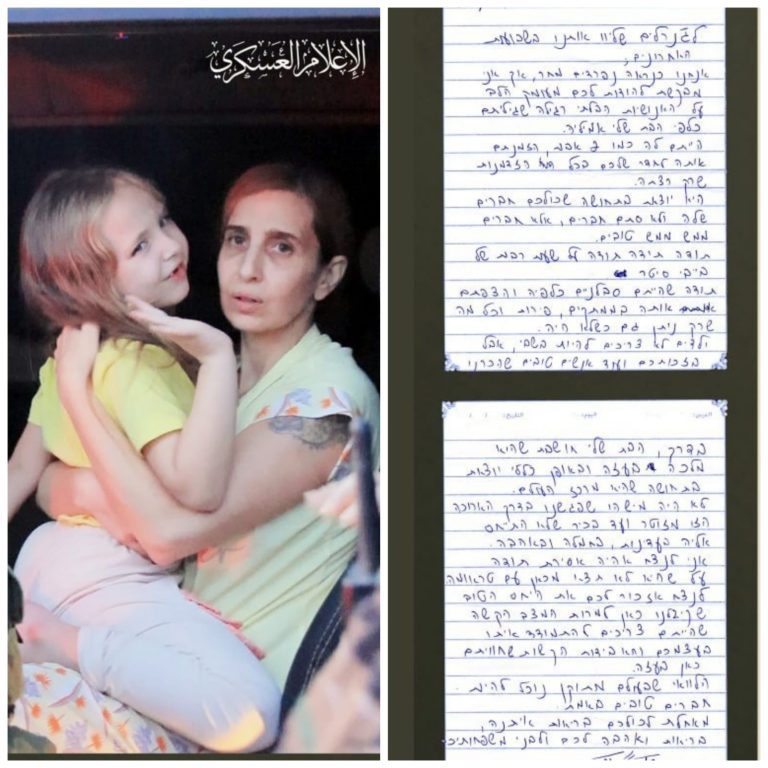 الإعلام العسكري
לגנרלים שליוו אותנו בשבועות
האחרונים,
אנחנו כנראה נפרדים מחר, אך אני
מבקשת להודות לכם מעומק הלב
על האנושיות הבלתי רגילה שגיליתם
כלפי הבת שלי אמיליה.
הייתם לה כמו אבות, הזמנתם
אותה לחדר שלכם בכל הזדמנות
שרק רצתה.
היא יוצאת בתחושה שכולכם חברים
שלה ולא סתם חברים, אלא חברים
ממש ממש טובים.
תודה תודה תודה על שעות רבות של
בייבי סיטר
תודה שהייתם סבלניים כלפיה והצפתם
אותה בממתקים, פירות וכל מה
שרק ניתן גם כשלא היה.
ילדים לא צריכים להיות בשבי, אבל
בזכותכם ועוד אנשים טובים שהכרנו
בדרך, הבת שלי חושבת שהיא
מלכה בעזה ובאופן כללי יוצאת
בתחושה שהיא מרכז העולם.
לא היה מישהו שפגשנו בדרך הארוכה
הזו מזוטר ועד בכיר שלא התייחס
אליה בעדינות, בחמלה ובאהבה.
אני לנצח אהיה אסירת תודה
על שהיא לא תצא מכאן עם טראומה
לנצח אזכור לכם את היחס הטוב
שקיבלנו כאן למרות המצב הקשה
שהייתם צריכים להתמודד איתו
בעצמכם והאבידות הקשות שחוויתם
כאן בעזה.
הלוואי שבעולם מתוקן נוכל להיות
חברים טובים באמת.
מאחלת לכולכם בריאות איתנה,
בריאות ואהבה לכם ולבני משפחותיכם